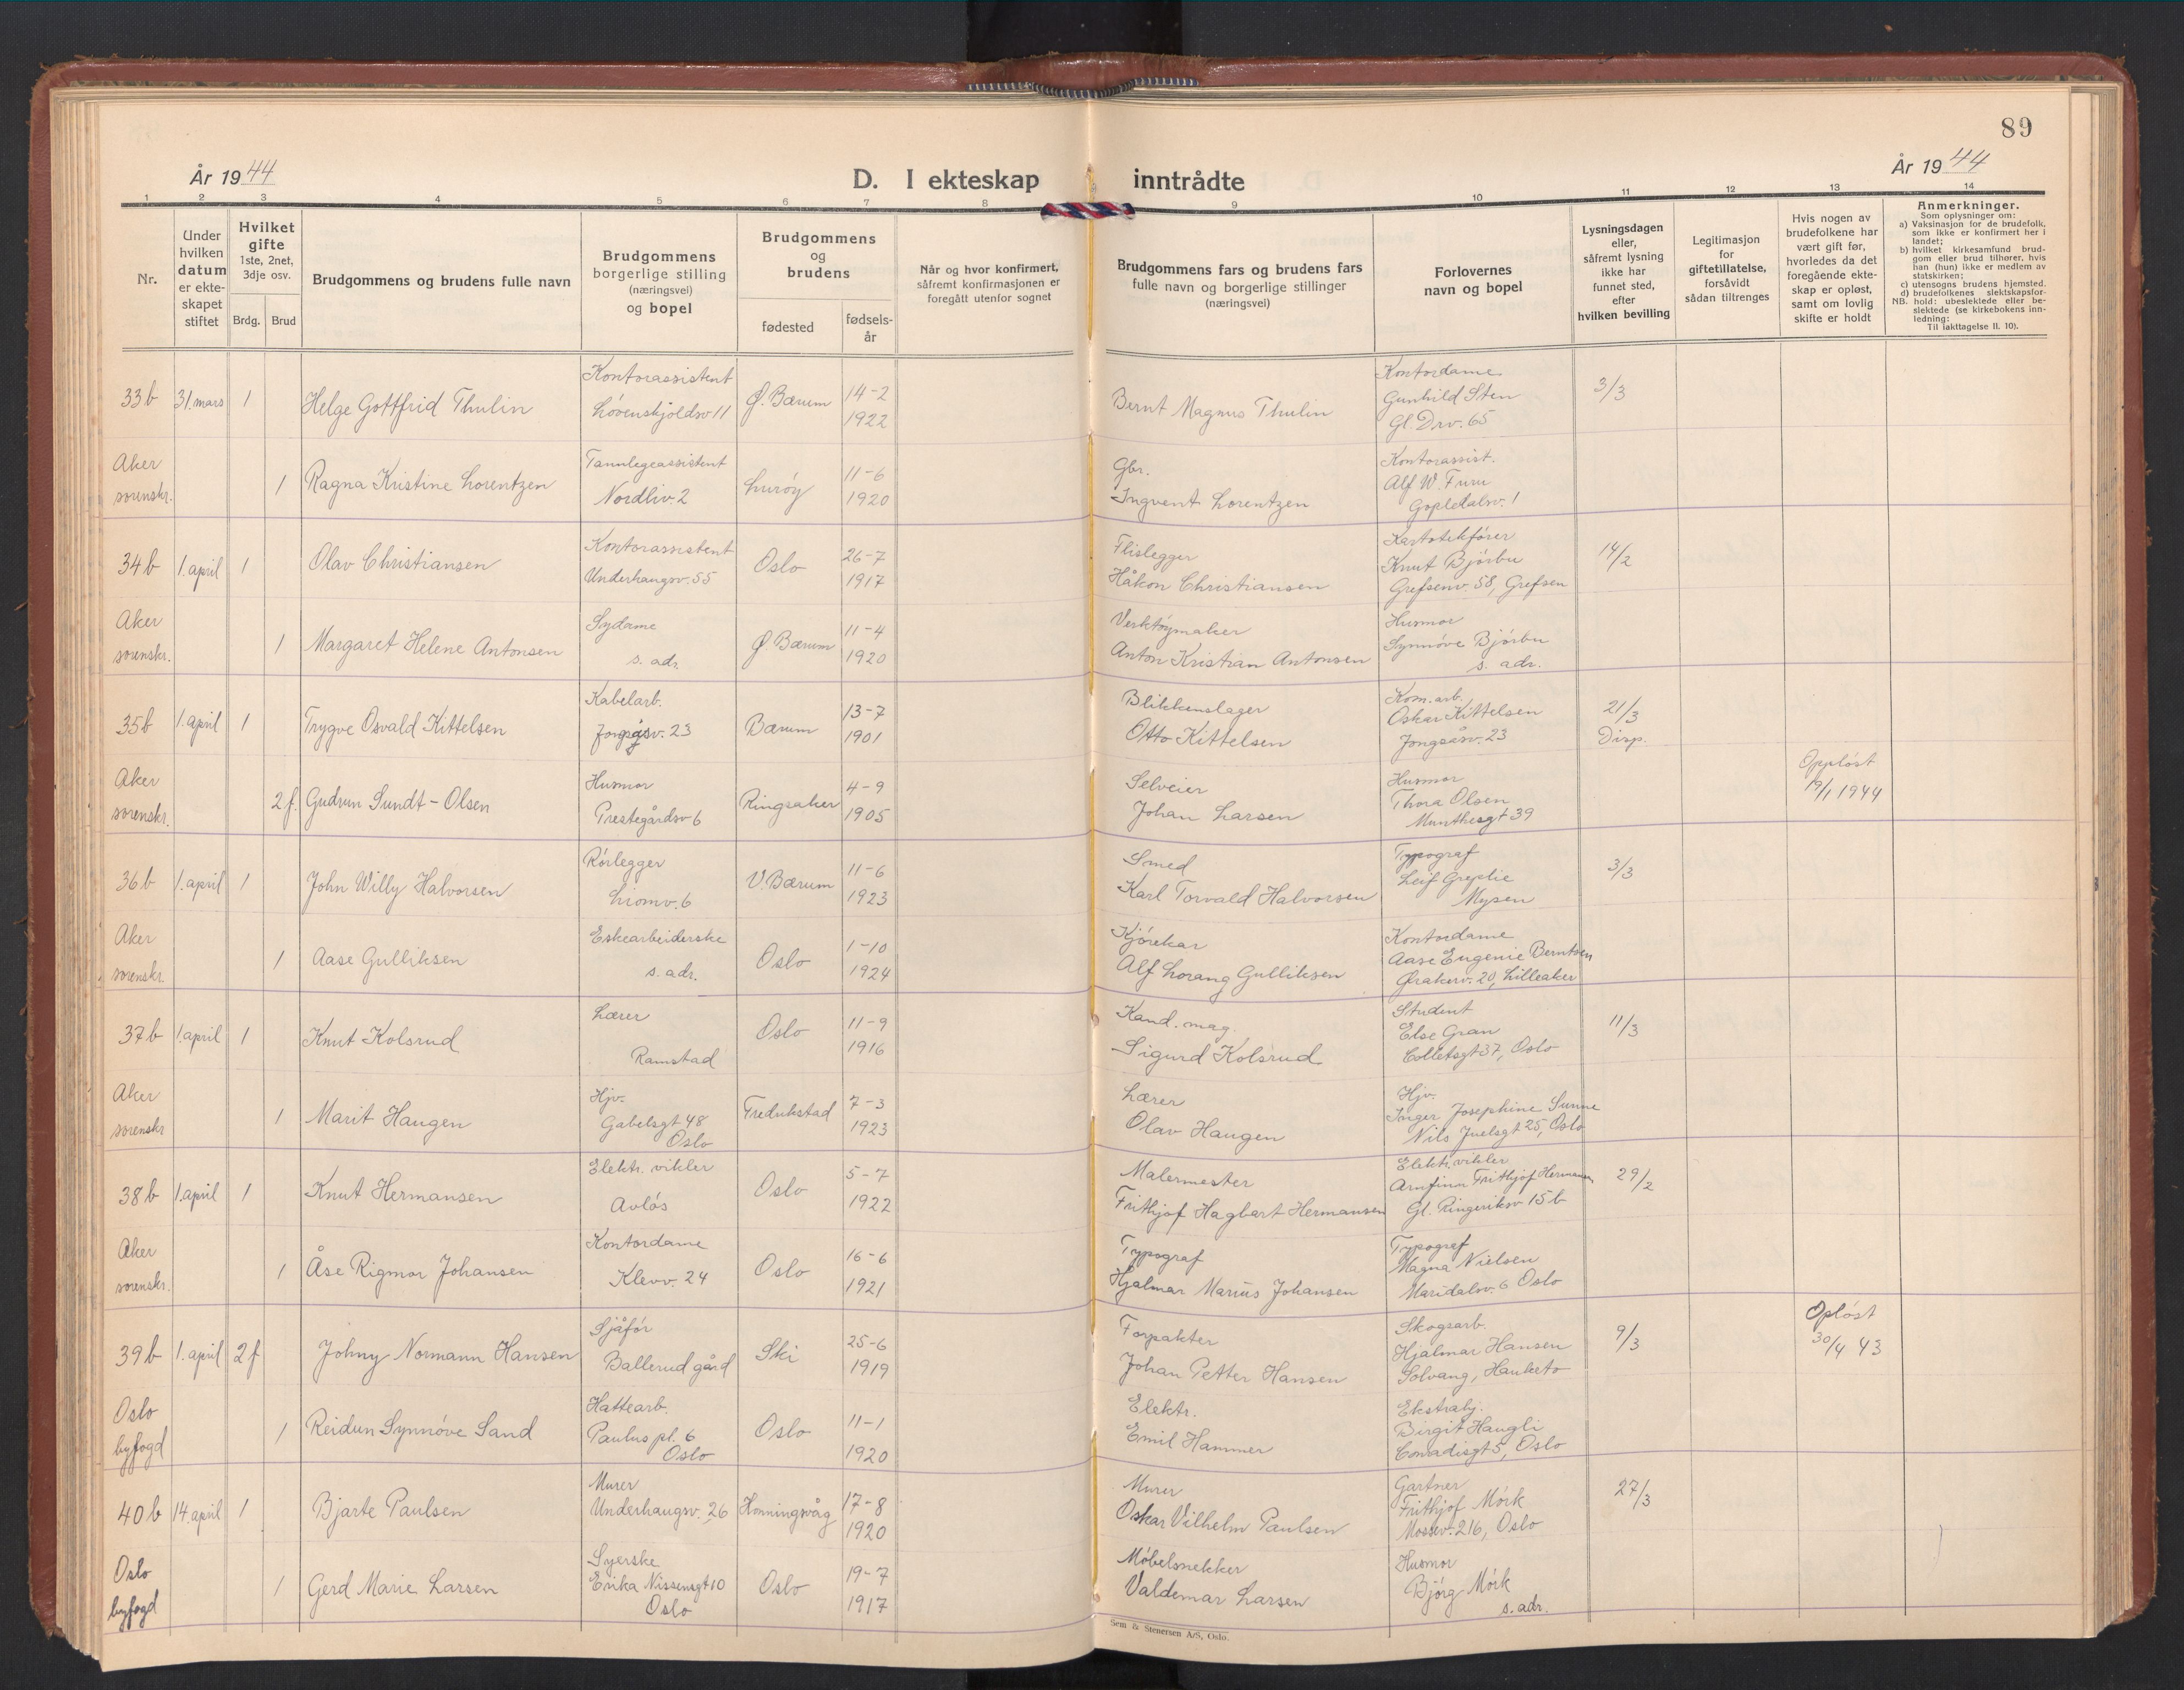 89
År 1944
D. I ekteskap inntrådte
År 1944
1 2 3 4 5 6 7 8 9 10 11 12 13 14
Nr.
Under hvilken datum er ekteskapet stiftet
Hvilket gifte 1ste, 2net, 3dje osv.
Brdg. Brud
Brudgommens og brudens fulle navn
Brudgommens borgerlige stilling (næringsvei) og bopel
Brudgommens og brudens
fødested
fødselsår
Når og hvor konfirmert, såfremt konfirmasjonen er foregått utenfor sognet
Brudgommens fars og brudens fars fulle navn og borgerlige stillinger (næringsvei)
Forlovernes navn og bopel
Lysningsdagen eller, såfremt lysning ikke har funnet sted, efter hvilken bevilling
Legitimasjon for giftetillatelse, forsåvidt sådan tiltrenges
Hvis nogen av brudefolkene har vært gift før, hvorledes da det foregående ekteskap er opløst, samt om lovlig skifte er holdt
Anmerkninger.
Som oplysninger om:
a) Vaksinasjon for de brudefolk, som ikke er konfirmert her i landet;
b) hvilket kirkesamfund brudgom eller brud tilhører, hvis han (hun) ikke er medlem av statskirken;
c) utensogns brudens hjemsted.
d) brudefolkenes slektskapsforhold: ubeslektede eller beslektede (se kirkebokens innledning:
NB. Til iakttagelse II. 10).
33b 31.mars 1 Helge Gottfrid Thulin Kontorassistent Løvenskjoldsv 11 Ø. Bærum 14-2 1922 Bernt Magnus Thulin Kontordame Gunhild Sten Gl. Drv. 65 3/3
Aker sorenskr. 1 Ragna Kristine Lorentzen Tannlegeassistent Nordliv. 2 Lurøy 11-6 1920 Gbr. Ingvent Lorentzen Kontorassist. Alf W. Furu 1
34b 1.april 1 Olav Christiansen Kontorassistent Underhaugsv. 55 Oslo 26-7 1917 Flislegger Håkon Christiansen Kartotekfører Knut Bjørbu Grefsenv. 58, Grefsen 14/2
Aker sorenskr. 1 Margaret Helene Antonsen Sydame s. adr. Ø. Bærum 11-4 1920 Verktøymaker Anton Kristian Antonsen Husmor Synnøve Bjørbu s. adr.
35b 1.april 1 Trygve Osvald Kittelsen Kabelarb. Jongsåsv. 23 Bærum 13-7 1901 Blikkenslager Otto Kittelsen Kom.arb. Oskar Kittelsen Jongsåsv. 23 21/3 Disp.
Aker sorenskr. 2f. Gudrun Sundt-Olsen Husmor Prestegårdsv 6 Ringsaker 4-9 1905 Selveier Johan Larsen Husmor Thora Olsen Munthesgt 39 Oppløst 19/1 1944
36b 1.april 1 John Willy Halvorsen Rørlegger Liomv. 6 V. Bærum 11-6 1923 Smed Karl Torvald Halvorsen Typograf Leif Greplie Mysen 3/3
Aker sorenskr. 1 Aase Gulliksen Eskearbeiderske s. adr. Oslo 1-10 1924 Kjørekar Alf Lorang Gulliksen Kontordame Aase Eugenie Berntsen Ørakerv. 20, Lilleaker
37b 1.april 1 Knut Kolsrud Lærer Ramstad Oslo 11-9 1916 Kand. mag. Sigurd Kolsrud Student Else Gran Colletsgt 37, Oslo 11/3
Aker sorenskr 1 Marit Haugen Hjv. Gabelsgt 48 Oslo Fredrikstad 7-3 1923 Lærer Olav Haugen Hjv. Inger Josephine Sunne Nils Juelsgt 25, Oslo
38b 1.april 1 Knut Hermansen Elektr. vikler Avløs Oslo 5-7 1922 Malermester Frithjof Hagbart Hermansen Elektr. vikler Arnfinn Frithjof Hermansen Gl. Ringeriksv 15b 29/2
Aker sorenskr. 1 Åse Rigmor Johansen Kontordame Klevv. 24 Oslo 16-6 1921 Typograf Hjalmar Marius Johansen Typograf Magna Nielsen Maridalsv. 6 Oslo
39b 1.april 2f Johny Normann Hansen Sjåfør Ballerud gård Ski 25-6 1919 Forpakter Johan Petter Hansen Skogsarb. Hjalmar Hansen Solvang, Hauketo 9/3 Opløst 30/4 43
Oslo byfogd 1 Reidun Synnøve Sand Hattearb. Paulus pl. 6 Oslo Oslo 11-1 1920 Elektr. Emil Hammer Ekstrahj. Birgit Haugli Conradisgt 5, Oslo
40b 14.april 1 Bjarte Paulsen Murer Underhaugsv. 26 Honningsvåg 17-8 1920 Murer Oskar Vilhelm Paulsen Gartner Frithjof Mørk Mossev. 216, Oslo 27/3
Oslo byfogd 1 Gerd Marie Larsen Syerske Erika Nissensgt 10 Oslo Oslo 19-7 1917 Møbelsnekker Valdemar Larsen Husmor Bjørg Mørk s. adr.
Sem & Stenersen A/S, Oslo.